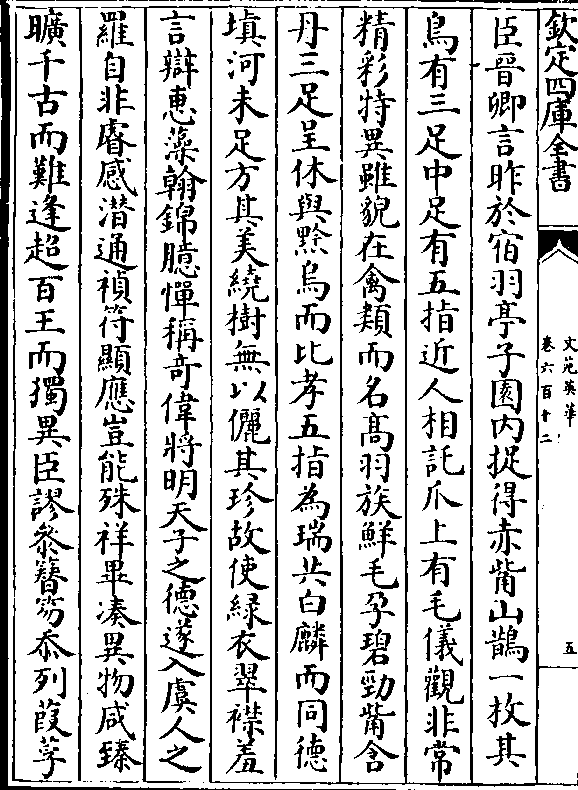 欽定四庫全書
文苑英華
卷六百十二
五
臣晉卿言昨於宿羽亭子園内捉得赤觜山鵲一枚其
鳥有三足中足有五指近人相託爪上有毛儀觀非常
精彩特異雖貌在禽類而名髙羽族鮮毛孕碧勁觜含
丹三足呈休與黙烏而比孝五指為瑞共白麟而同德
填河未足方其美繞樹無以儷其珍故使緑衣翠襟羞
言辯恵藻翰錦臆憚稱竒偉將明天子之德遂入虞人之
羅自非睿感潛通禎符顯應豈能殊祥畢凑異物咸臻
曠千古而難逢超百王而獨異臣謬叅簪笏忝列葭莩